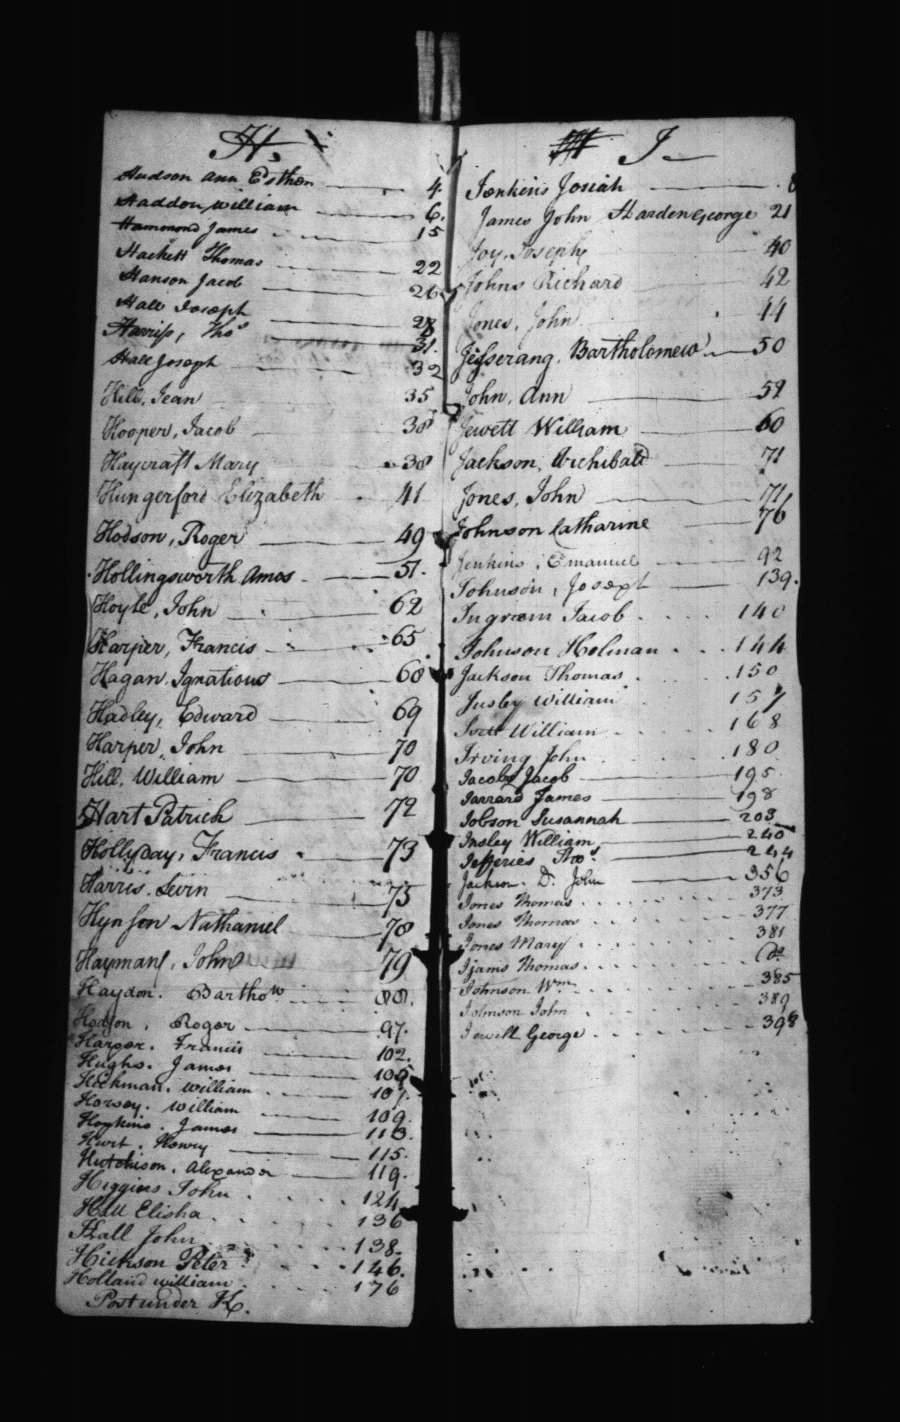 H.
Hudson ann Esther 4
Haddon william 6.
Hammond James 15
Hackett Thomas 22
Hanson Jacob 26
Hall Joseph 28
Harris, Thos 31.
Hall Joseph 32
Hill, Jean 35
Hooper, Jacob 38
Haycraft Mary 38
Hungerford Elizabeth 41
Hodson, Roger 49
Hollingsworth Amos 51.
Hoyle, John 62
Harper, Francis 65
Hagan, Ignatious 68
Hadley, Edward 69
Harper, John 70
Hill, William 70
Hart Patrick 72
Hollyday, Francis 73
Harris, Levin 75
Hynson Nathaniel 78
Hayman, John 79
Haydon. Barthow 88.
Hodson, Roger 97.
Harper. Francis 102.
Hughs. James 105
Hickman. william 107.
Horsey. William 109.
Hopkins. James 113.
Hurt. Henry 115.
Hutchison. Alexander 119.
Higgins John 124
Hall Elisha 136
Hall John 138.
Hickson Peter 146.
Holland william 176
Post under K.
J
Jenkins Josiah
James John Harden George 21
Joy, Joseph 40
Johns Richard 42
Jones, John 44
Jesserang, Bartholomew 50
John, Ann 59
Jewett William 60
Jackson, Archibald 71
Jones, John 71
Johnson Catharine 76
Jenkins, Emanuel 92
Johnson, Joseph 139.
Ingram Jacob 140
Johnson Holman 144
Jackson Thomas 150
Insley William 157
William 168
Irving John 180
Jacobs Jacob 195
Jarrard James 198
Jobson Susannah 203
Insley William 240
Jefferies Thos. 244
Jackson. D. John 356
Jones Thomas 373
Jones Thomas 377
Jones Mary 381
Ijams Thomas Do
Johnson Wm 385
Johnson John 389
Jewell George 398